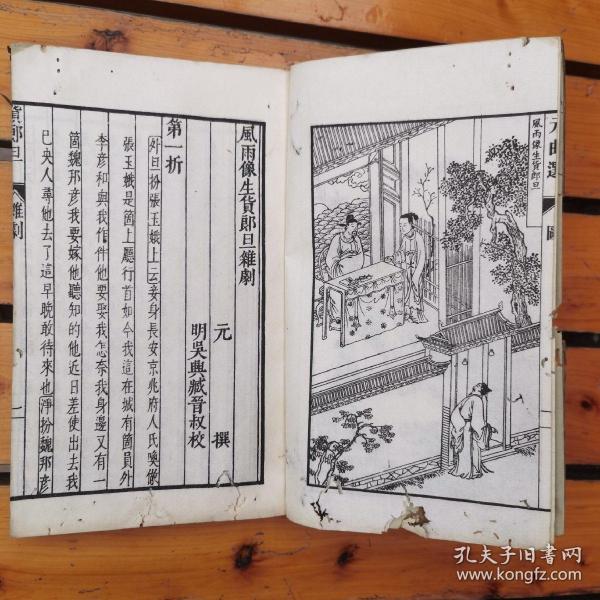 元曲選
圖
風雨像生貨郎旦
風雨像生貨郎旦雜劇
元 撰
明吳興臧晉叔校
第一折
外旦扮張玉娥上云妾身長安京兆府人氏喚做
張玉娥是箇上廳行首如今我這在城有箇員外
李彥和與我作伴他要娶我怎奈我身邊又有一
箇魏邦彥我要嫁他聽知的他近日差使出去我
已央人尋他去了這早晚敢待來也淨扮魏邦彥
貨郎旦
雜劇
一
孔夫子旧书网
www.kongfz.com